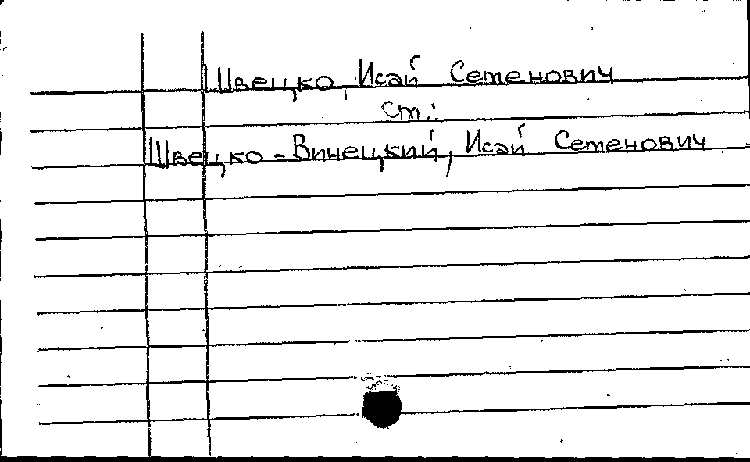 Швецко, Исай Семенович
См.:
Швецко-Винецкий, Исай Семенович